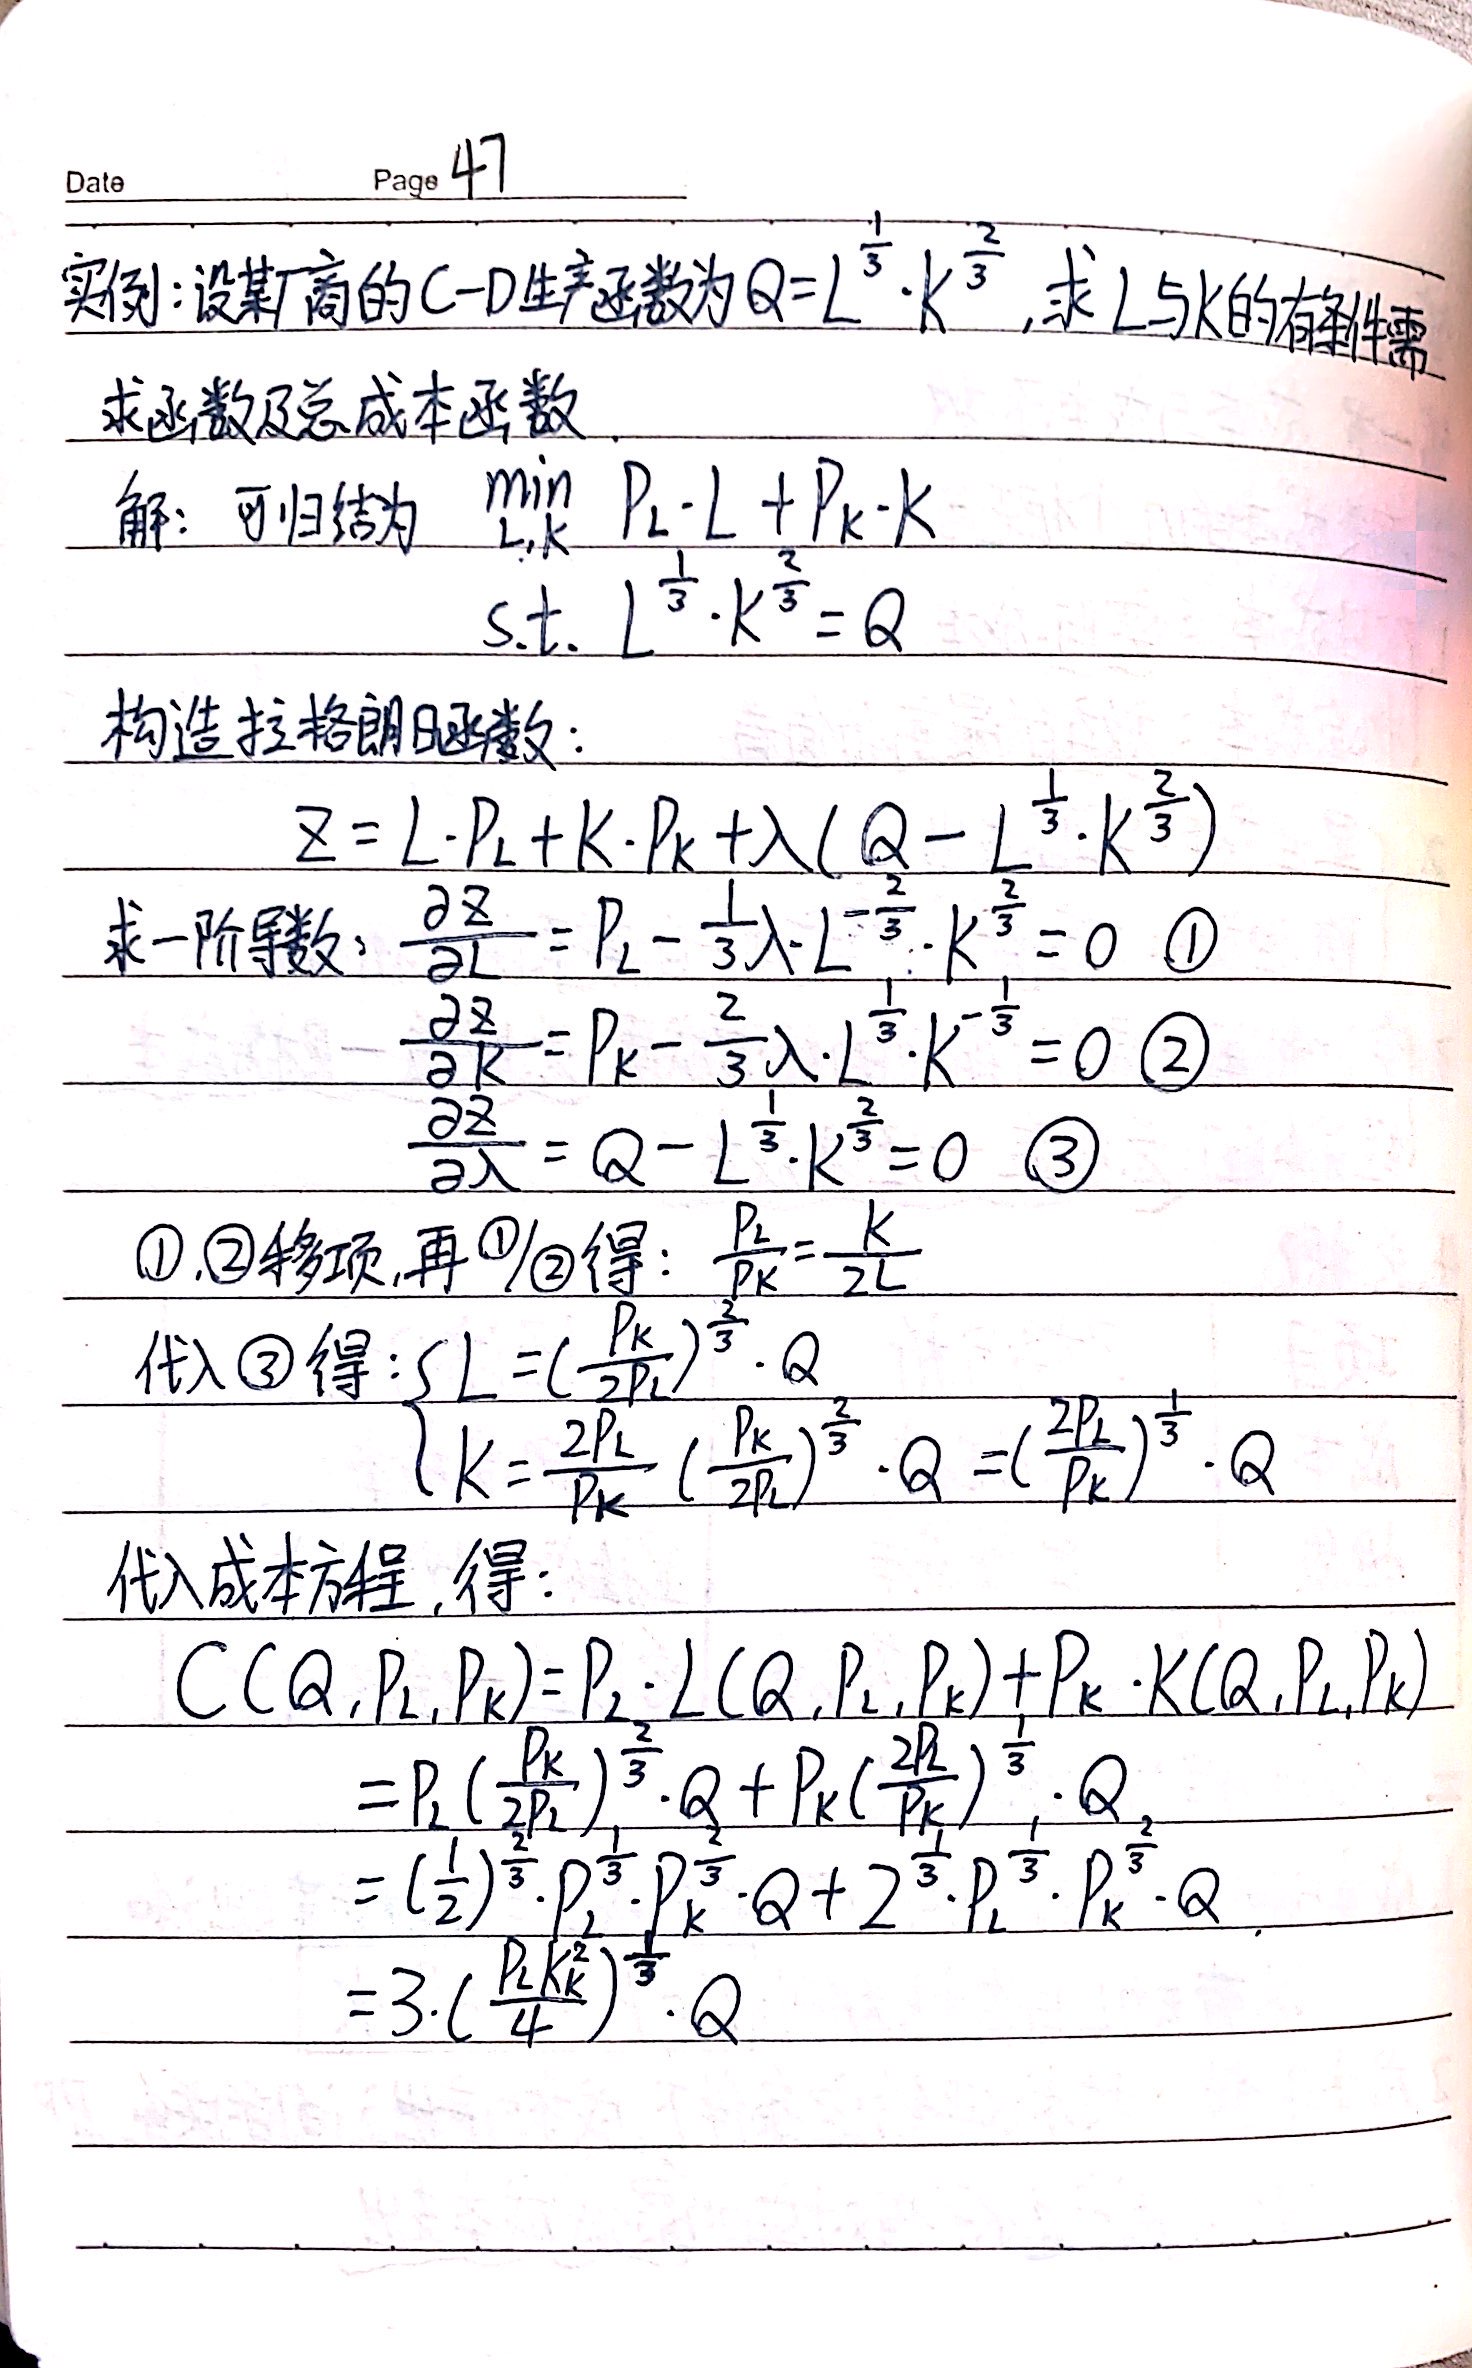 Date Page 47
实例：设某厂商的C-D生产函数为Q=L^{1/3}·K^{2/3},求L与K的有条件需
求函数及总成本函数.
解：可归结为 min_{L,K} P_L·L+P_K·K
s.t. L^{1/3}·K^{2/3}=Q
构造拉格朗日函数：
Z=L·P_L+K·P_K+λ(Q-L^{1/3}·K^{2/3})
求一阶导数：∂Z/∂L=P_L-1/3λ·L^{-2/3}·K^{2/3}=0 ①
∂Z/∂K=P_K-2/3λ·L^{1/3}·K^{-1/3}=0 ②
∂Z/∂λ=Q-L^{1/3}·K^{2/3}=0 ③
①.②移项,再①/②得：P_L/P_K=K/2L
代入③得：{L=(P_K/2P_L)^{2/3}·Q
K=2P_L/P_K (P_K/2P_L)^{2/3}·Q=(2P_L/P_K)^{1/3}·Q
代入成本方程,得：
C(Q,P_L,P_K)=P_L·L(Q,P_L,P_K)+P_K·K(Q,P_L,P_K)
=P_L(P_K/2P_L)^{2/3}·Q+P_K(2P_L/P_K)^{1/3}·Q
=(1/2)^{2/3}·P_L^{1/3}·P_K^{2/3}·Q+2^{1/3}·P_L^{1/3}·P_K^{2/3}·Q.
=3·(P_L K_K^2/4)^{1/3}·Q